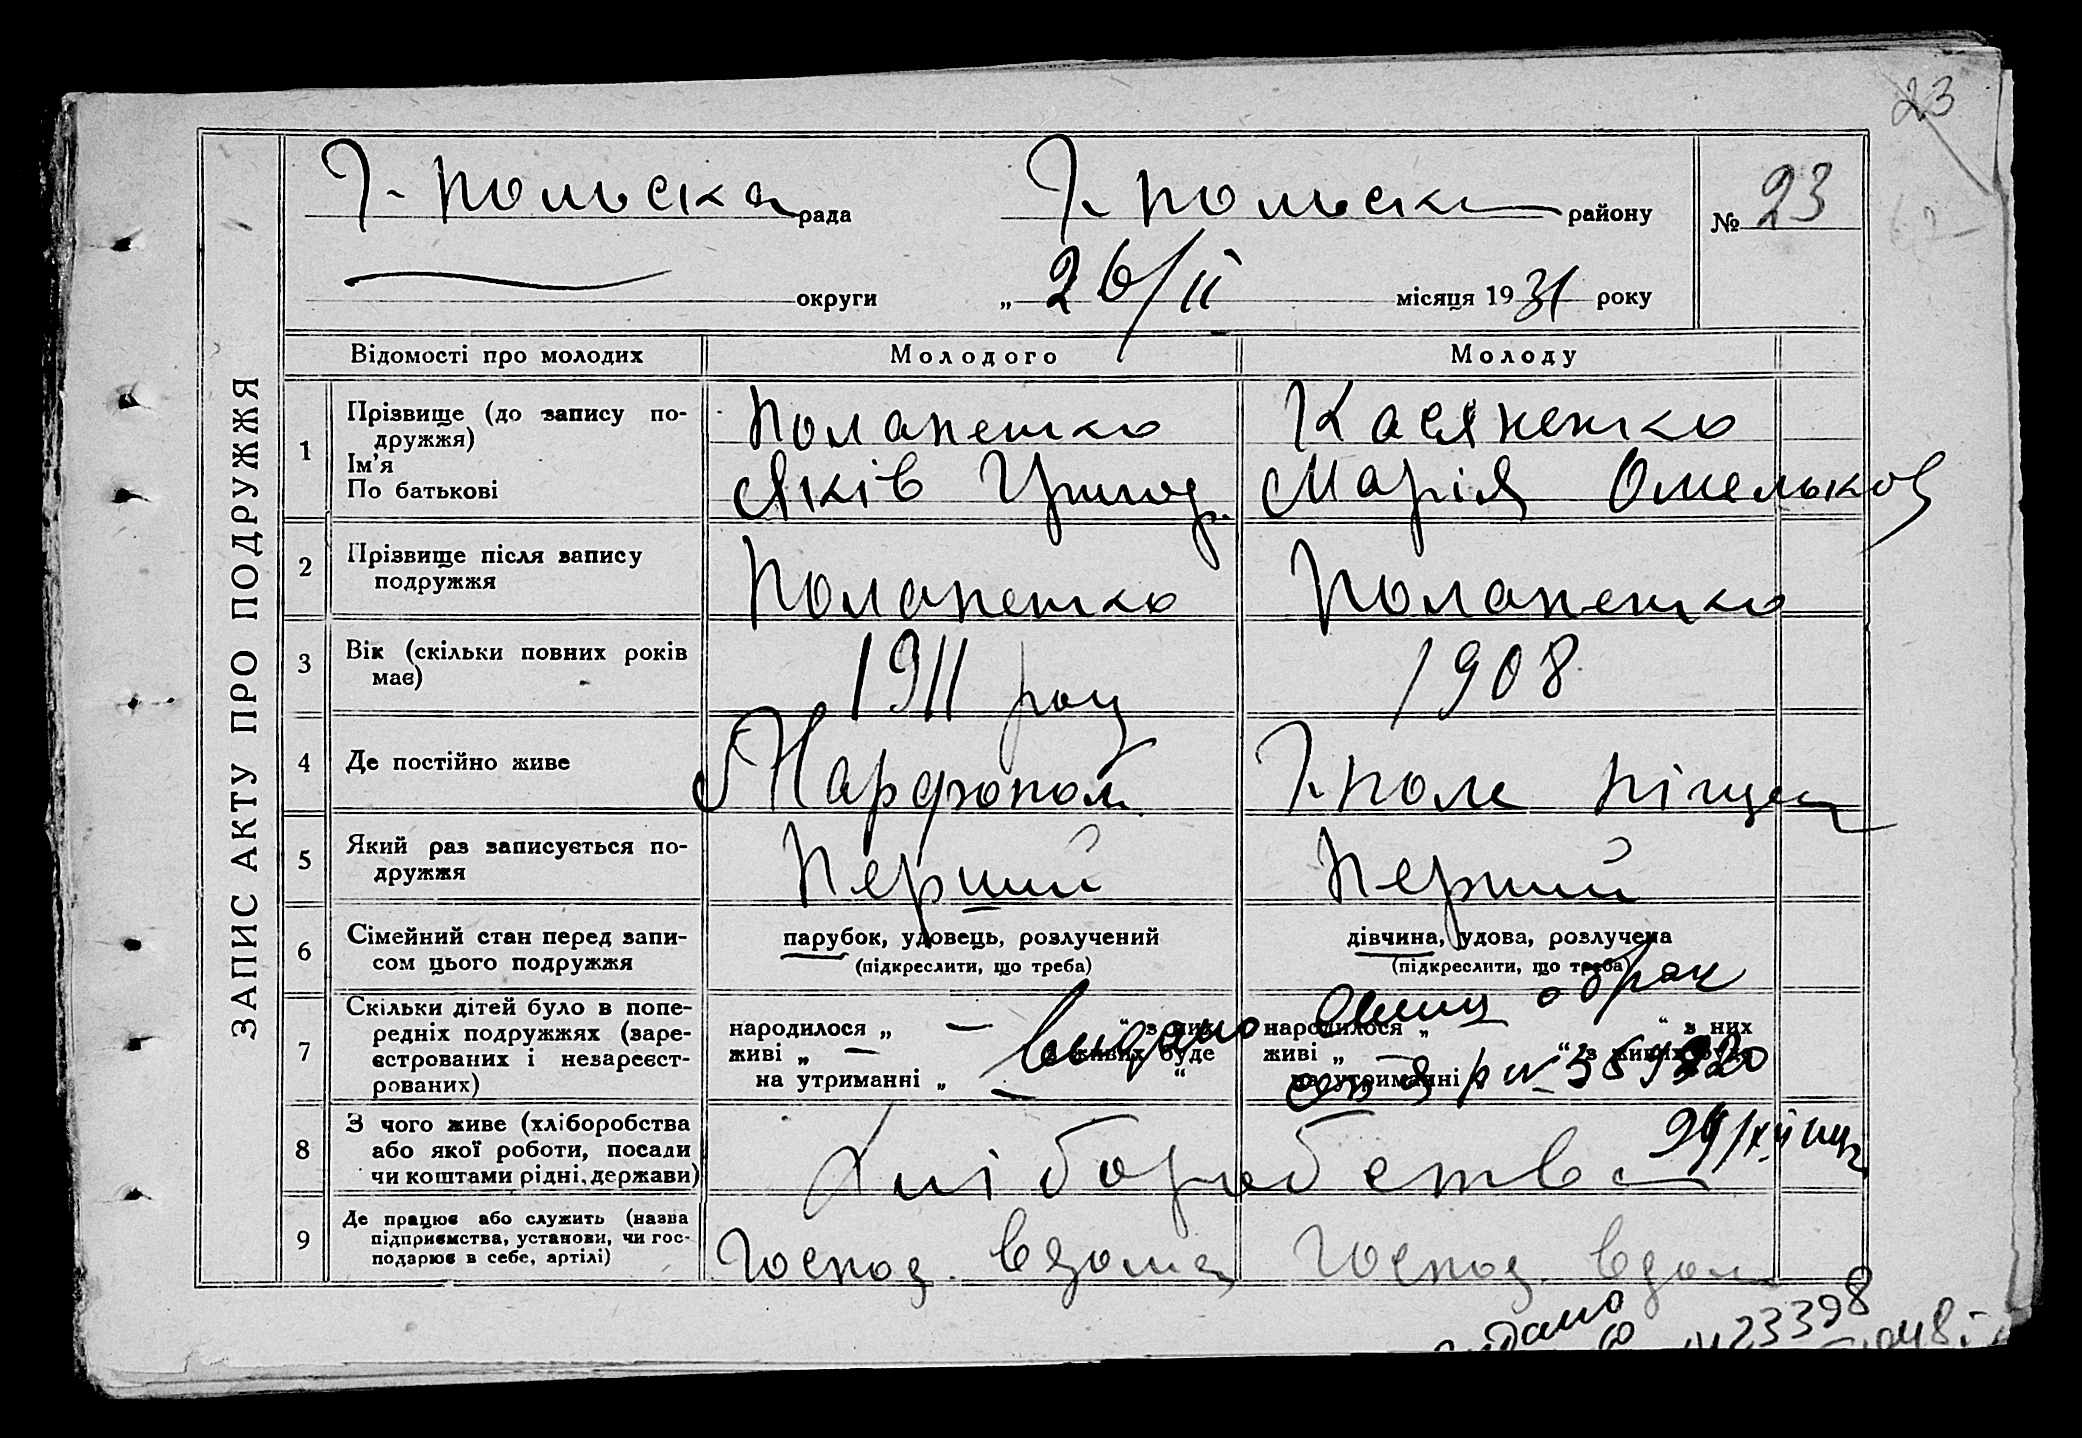 23
Г-Польська рада Г-Польськ району № 23
округи „ 26/II місяця 1931 року
ЗАПИС АКТУ ПРО ПОДРУЖЖЯ
Відомості про молодих Молодого Молоду
1 Прізвище (до запису по-
дружжя)
Ім'я
По батькові
Поланенко Касяненко
Яків Григор. Марія Омельков
2 Прізвище після запису
подружжя
Поланенко Поланенко
3 Вік (скільки повних років
має)
1911 року 1908
4 Де постійно живе
Марфопол Г-поле
5 Який раз записується по-
дружжя
Перший Перший
6 Сімейний стан перед запи-
сом цього подружжя
парубок, удовець, розлучений дівчина, удова, розлучена
(підкреслити, що треба) (підкреслити, що треба)
7 Скільки дітей було в попе-
редніх подружжях (заре-
єстрованих і незареєст-
рованих)
народилося „ — “ з них народилося „ “ з них
живі „ — живих буде живі „ — “ з живих буде
на утриманні „ — “ на утриманні
видано о брак
8 З чого живе (хліборобства
або якої роботи, посади
чи коштами рідні, держави)
Хліборобства
9 Де працює або служить (назва
підприємства, установи, чи гос-
подарює в себе, артілі)
Господ. вдома Господ. вдом
видано
23398